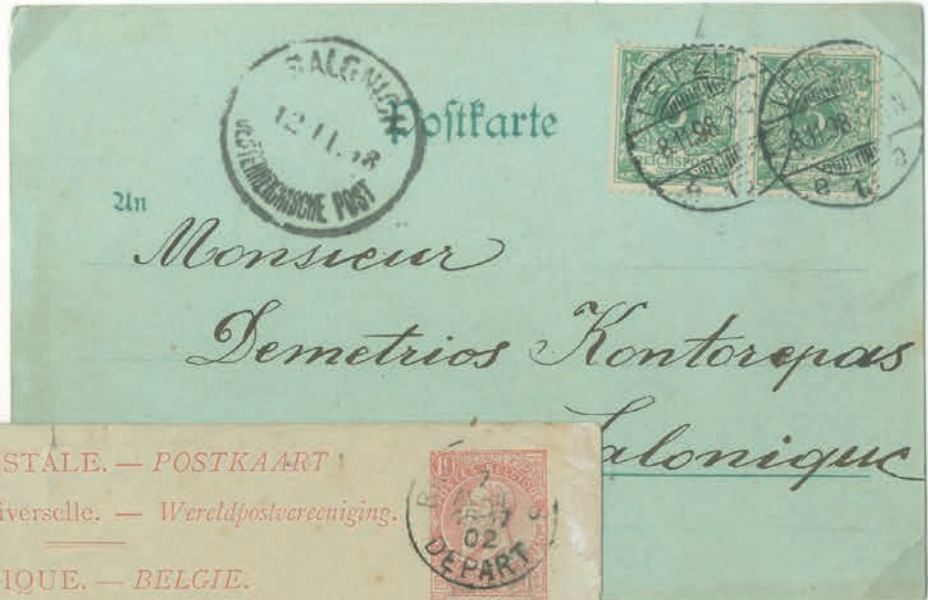 Postkarte
12 11. 98
OESTERREICHISCHE POST
LEIPZIG
8.11.98
REICHSPOST
LEIPZIG
8.11.98
An
Monsieur
Demetrios Kontorepas
Salonique
STALE. — POSTKAART
iverselle. — Wereldpostvereeniging.
IQUE. — BELGIE.
7
02
DEPART